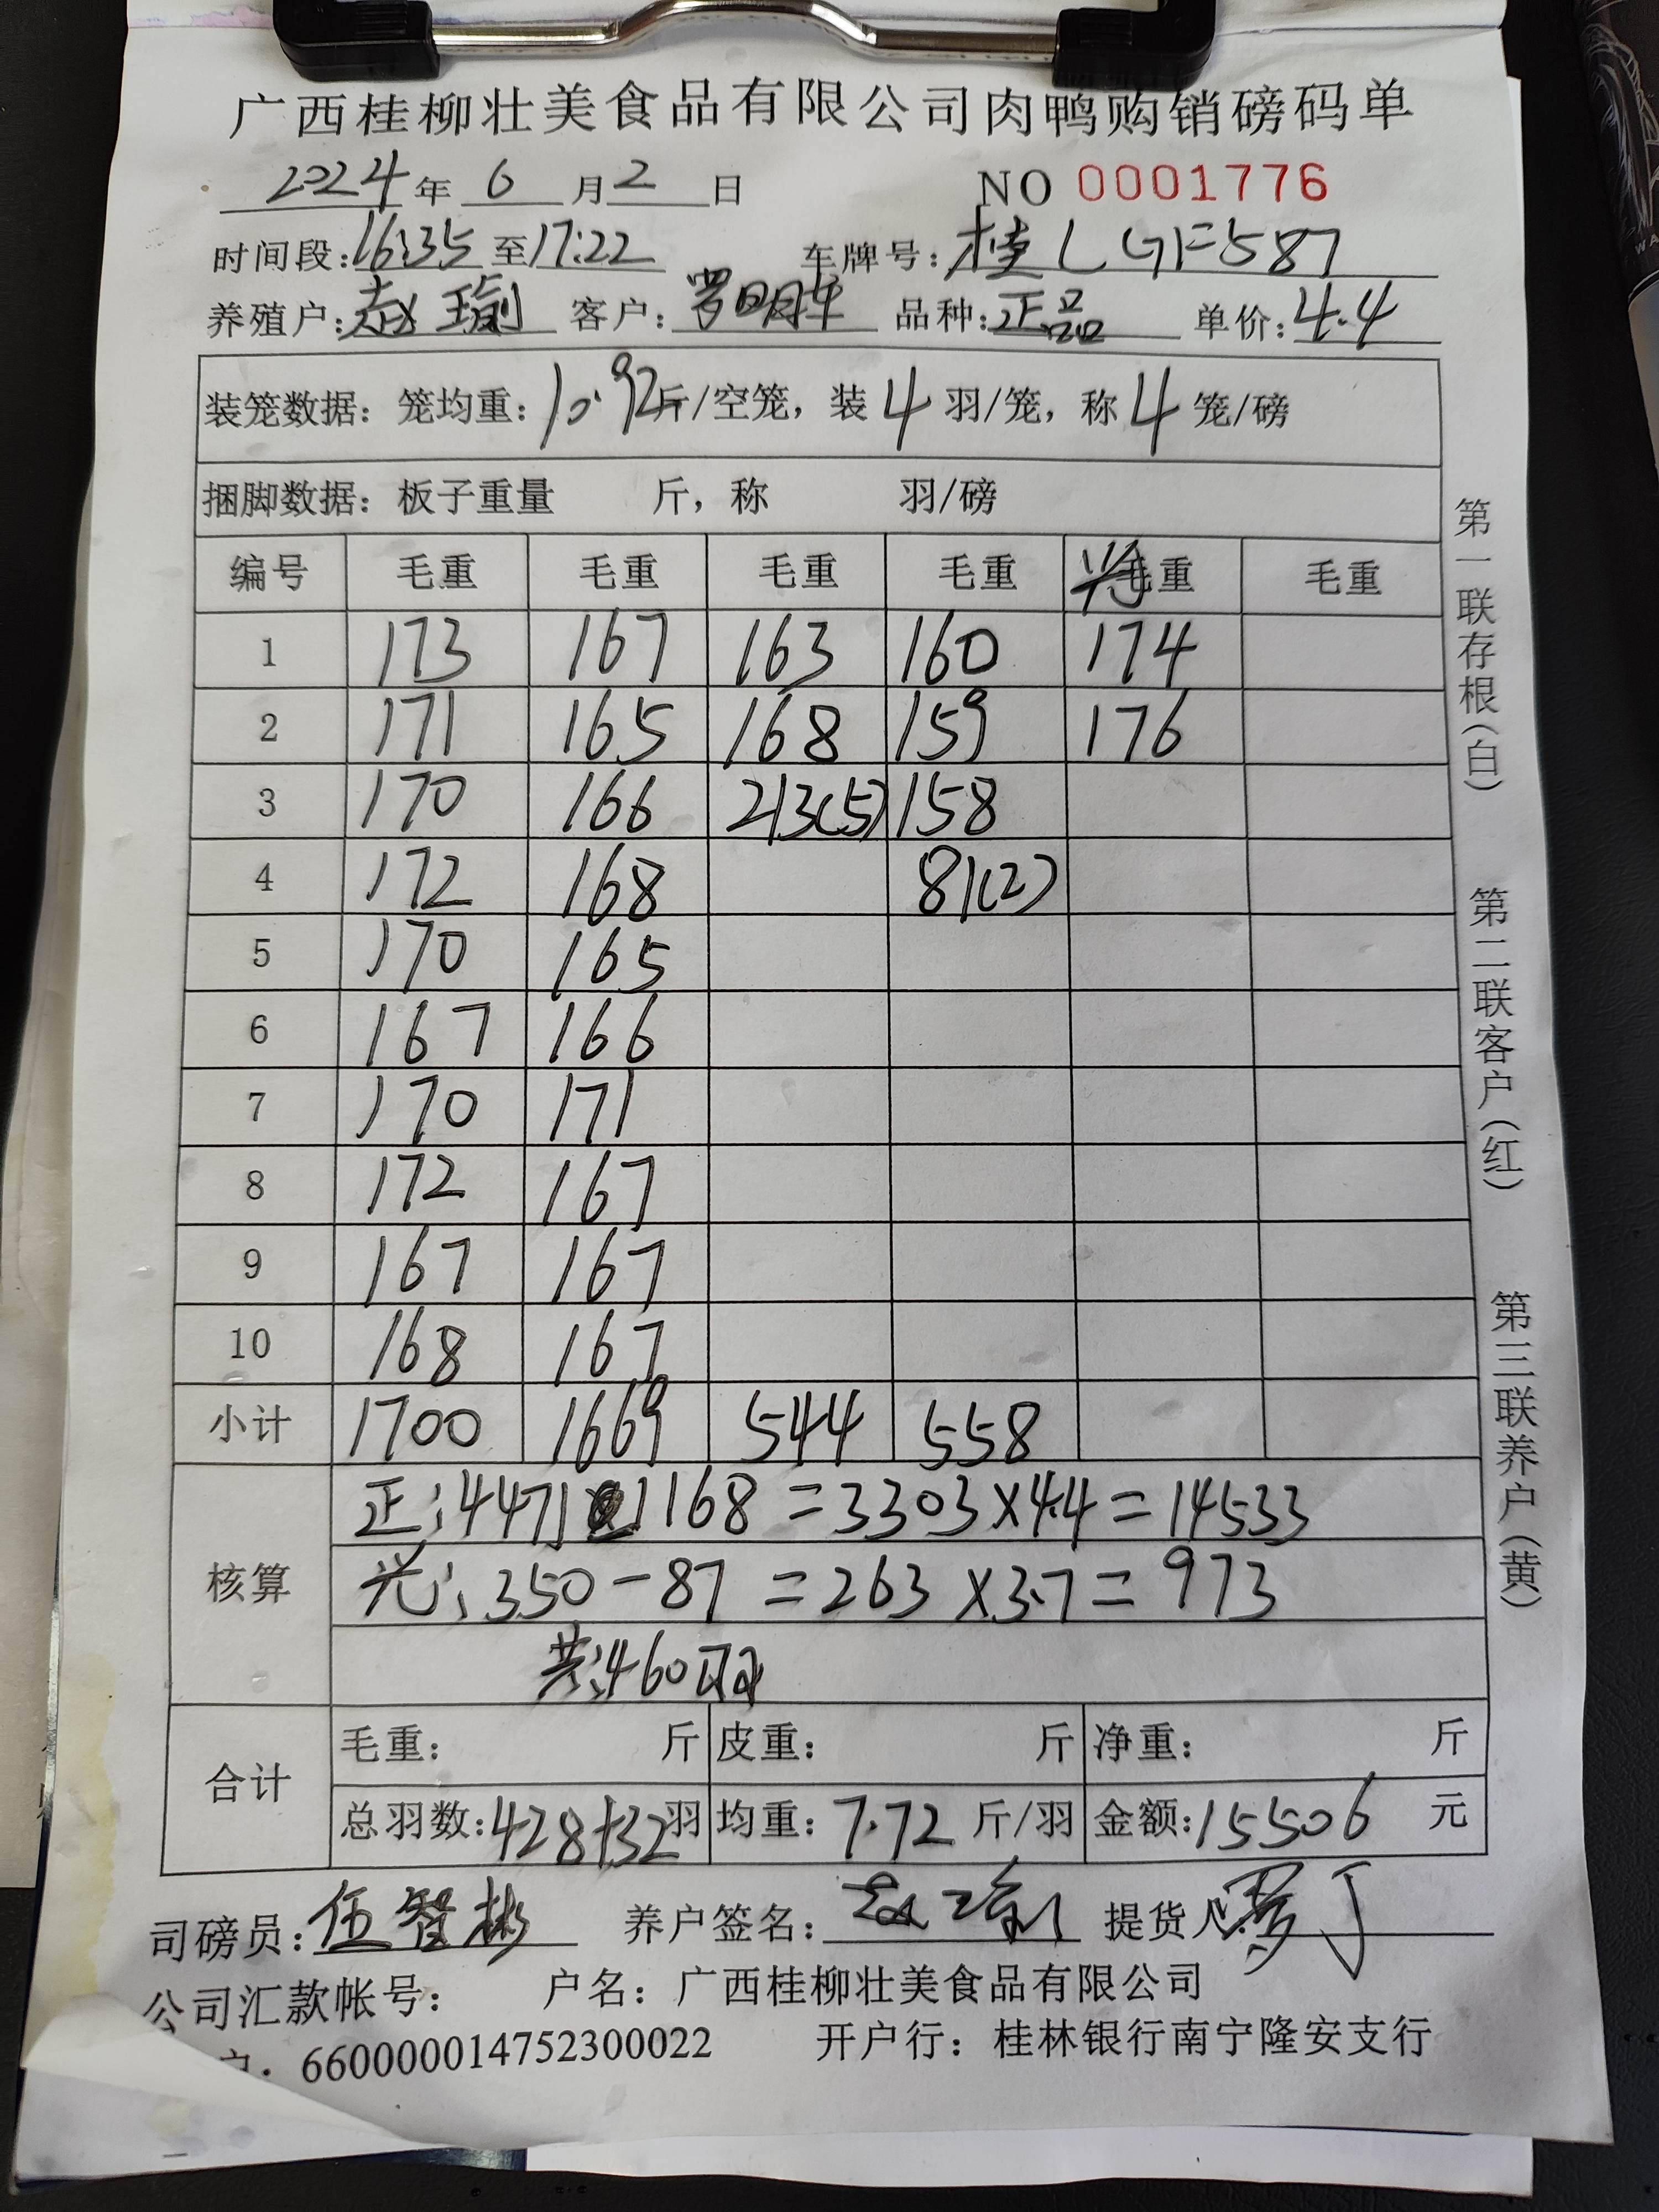 广西桂柳壮美食品有限公司肉鸭购销磅码单
2024年 6月2日 NO 0001776
时间段:16:35至17:22 车牌号:桂LGF587
养殖户:赵瑜 客户: 品种:正品 单价:4.4
装笼数据:笼均重:10.92斤/空笼,装4羽/笼,称4笼/磅
捆脚数据:板子重量 斤,称 羽/磅
编号 毛重 毛重 毛重 毛重 毛重 毛重
1 173 167 163 160 174
2 171 165 168 159 176
3 170 166 213(5) 158
4 172 168 81(2)
5 170 165
6 167 166
7 170 171
8 172 167
9 167 167
10 168 167
小计 1700 1669 544 558
核算
正:4471 1168=3303×4.4=14533
350-87=263×3.7=973
共:460羽
合计
毛重: 斤 皮重: 斤 净重: 斤
总羽数:428+32羽 均重:7.72斤/羽 金额:15506元
司磅员:伍智彬 养户签名:赵瑜 提货人
公司汇款帐号: 户名:广西桂柳壮美食品有限公司
户:660000014752300022 开户行:桂林银行南宁隆安支行
第一联存根(白)
第二联客户(红)
第三联养户(黄)